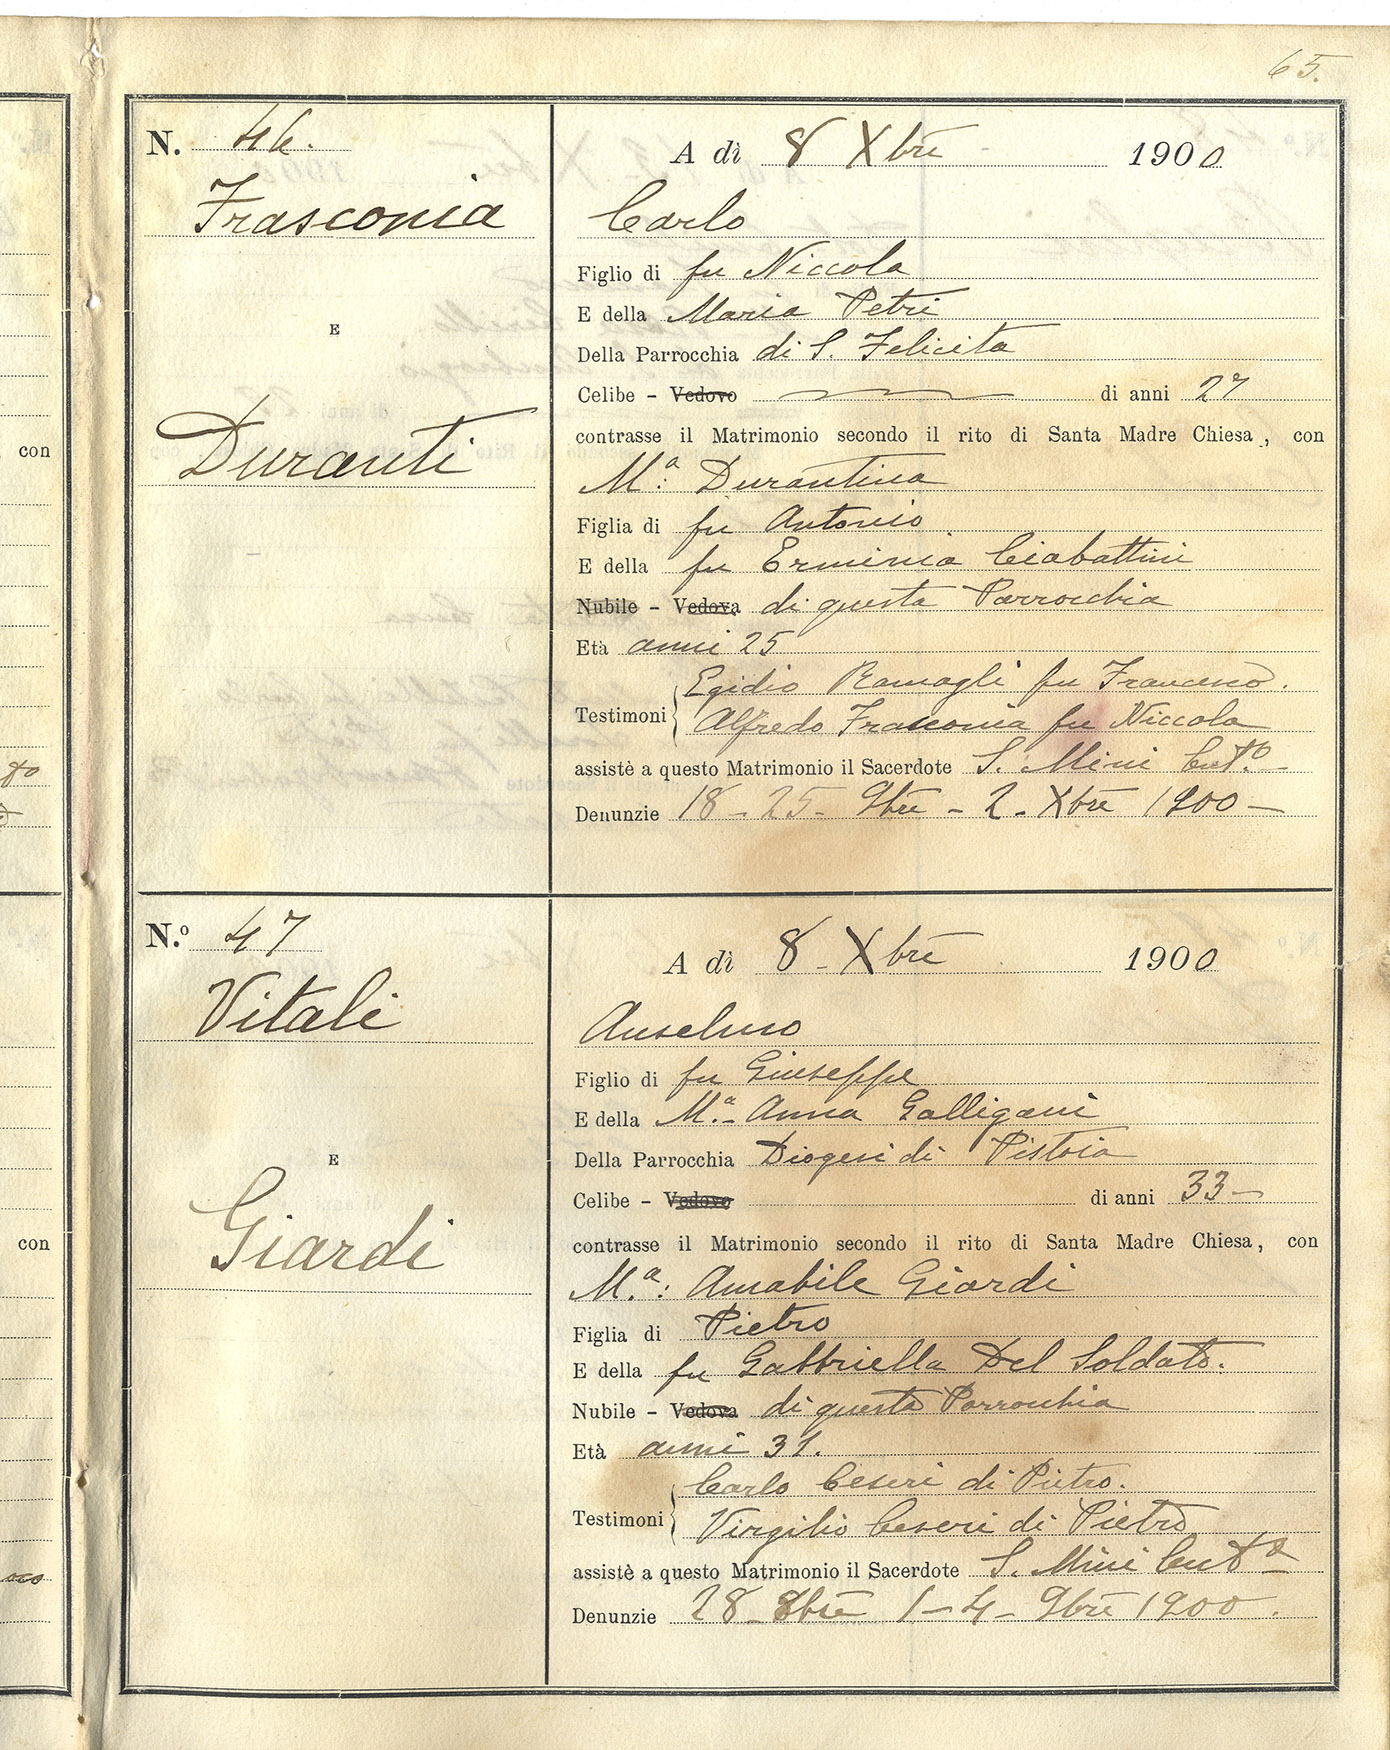 65.
N. 46.
A dì 8 Xbre 1900
Frasconia
Carlo
Figlio di fu Niccola
E della Maria Petri
E
Della Parrocchia di S. Felicita
Celibe - Vedovo di anni 27
Duranti
contrasse il Matrimonio secondo il rito di Santa Madre Chiesa, con
M.a Durantina
Figlia di fu Antonio
E della fu Erminia Ciabattini
Nubile - Vedova di questa Parrocchia
Età anni 25
Testimoni Egidio Ramagli fu Francesco.
Alfredo Frasconia fu Niccola
assistè a questo Matrimonio il Sacerdote S. Mini Cur.to
Denunzie 18 - 25 - 9bre - 2 - Xbre 1900 -
N.o 47
A dì 8 - Xbre 1900
Vitali
Anselmo
Figlio di fu Giuseppe
E della M.a Anna Galligani
E
Della Parrocchia di Pistoia
Celibe - Vedovo di anni 33 -
Giardi
contrasse il Matrimonio secondo il rito di Santa Madre Chiesa, con
M.a: Amabile Giardi
Figlia di Pietro
E della fu Gabbriella Del Soldato.
Nubile - Vedova di questa Parrocchia
Età anni 31.
Testimoni Carlo Ceseri di Pietro.
Virgilio Ceseri di Pietro
assistè a questo Matrimonio il Sacerdote S. Mini
Denunzie 28 - 8bre 1 - 4 - 9bre 1900.
con
con